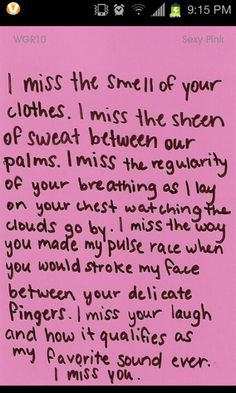 9:15 PM
WGR10 Sexy Pink
I miss the smell of your
clothes. I miss the sheen
of sweat between our
palms. I miss the regularity
of your breathing as I lay
on your chest watching the
clouds go by. I miss the way
you made my pulse race when
you would stroke my face
between your delicate
fingers. I miss your laugh
and how it qualifies as
my favorite sound ever.
I miss you.